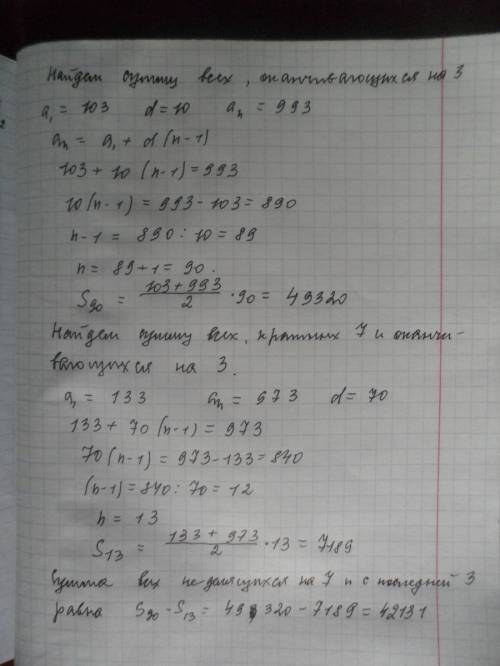 Найдем сумму всех, оканчивающихся на 3
a₁ = 103 d = 10 aₙ = 993
aₙ = a₁ + d(n-1)
103 + 10(n-1) = 993
10(n-1) = 993 - 103 = 890
n-1 = 890 : 10 = 89
n = 89+1 = 90.
S₉₀ = (103+993)/2 · 90 = 49320
Найдем сумму всех, кратных 7 и оканчи-
вающихся на 3.
a₁ = 133 aₙ = 973 d = 70
133 + 70(n-1) = 973
70(n-1) = 973-133 = 840
(n-1) = 840 : 70 = 12
n = 13
S₁₃ = (133 + 973)/2 · 13 = 7189
Сумма всех не делящихся на 7 и с последней 3
равна S₉₀ - S₁₃ = 49320 - 7189 = 42131